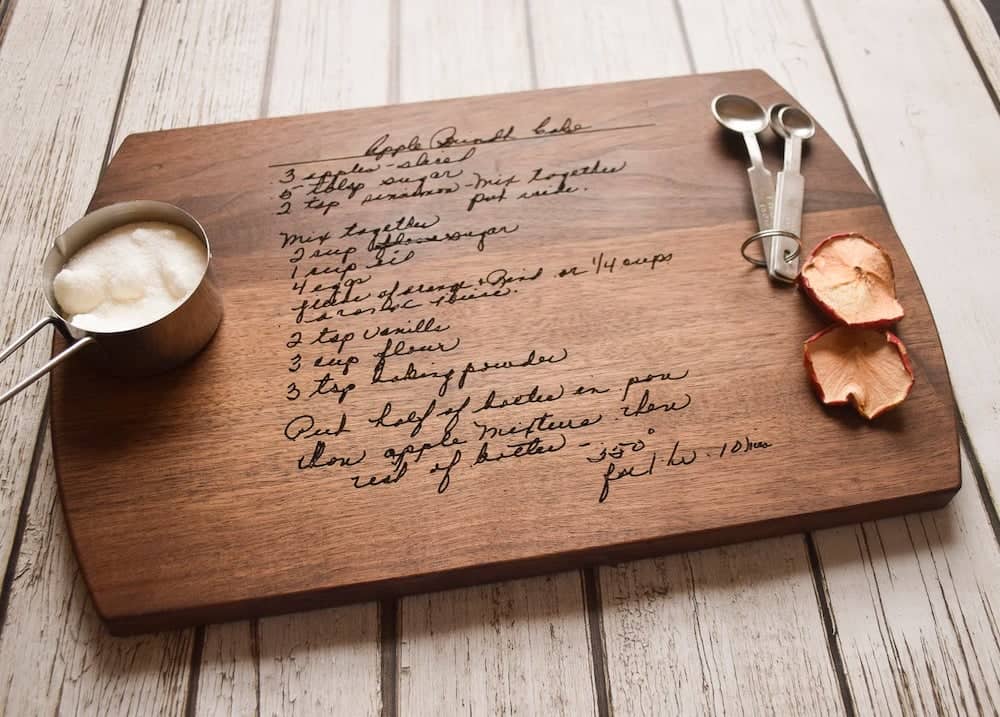 Apple Bundt Cake
3 apples - sliced
5 tblsp sugar
2 tsp cinnamon - mix together
put aside.
Mix together
2 cup sugar
1 cup oil
4 eggs
of orange + Rind or 1/4 cups
juice.
2 tsp vanilla
3 cup flour
3 tsp baking powder
Put half of batter in pan
then apple mixture then
rest of batter - 350°
for 1 hr. 10